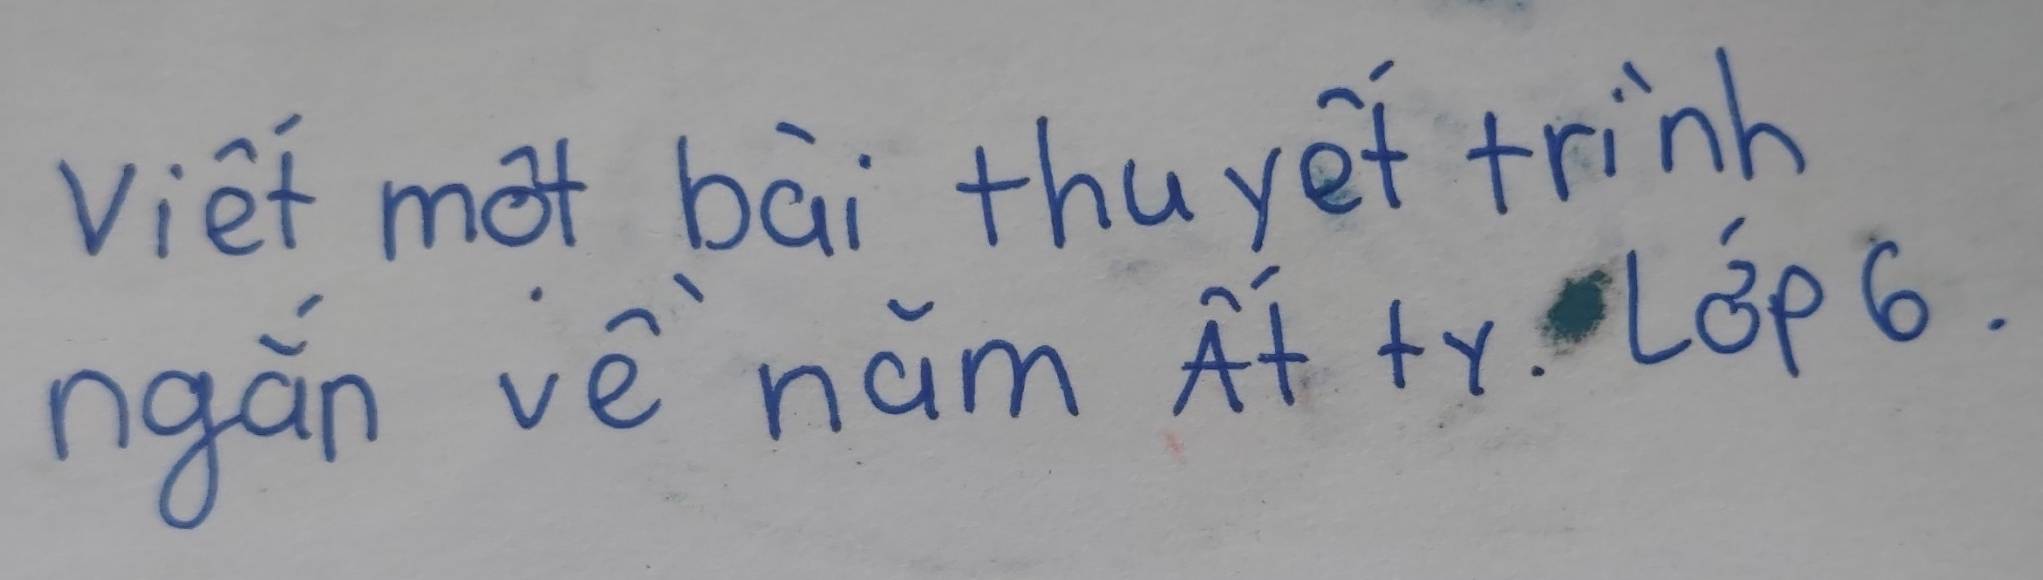 Viết một bài thuyết trình
ngắn về năm Ất tỵ. Lớp 6.